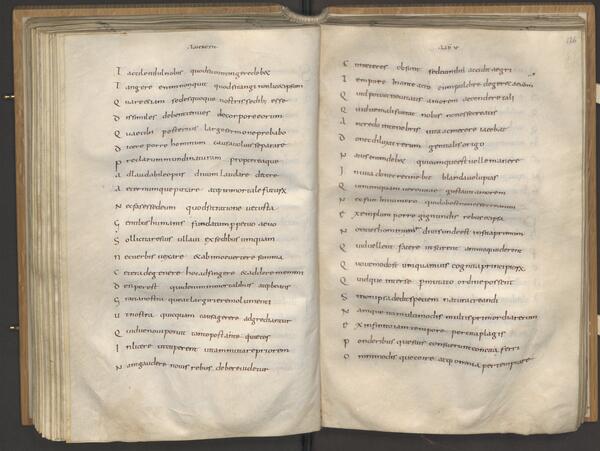 LUCRETII
T actile nil nobis quod contingere debet
T angere enim non quit quod tangi non licet ipsum
Q uare etiam sedes quoque nostris sedibus esse
D issimiles debent tenues de corpore eorum
Q uae tibi posterius largo sermone probabo
D icere porro hominum causa voluisse parare
P raeclaram mundi naturam proptereaque
A dlaudabile opus divom laudare decere
A eternumque putare atque inmortale futurum
N ec fas esse deum quod sit ratione vetusta
G entibus humanis fundatum perpetuo aevo
S ollicitare suis ulla vi ex sedibus umquam
N ec verbis vexare et ab imo evertere summa
C etera de genere hoc adfingere et addere memmi
D esiperest quid enim inmortalibus atque beatis
G ratia nostra queat largirier emolumenti
U t nostra quicquam causa gerere adgrediantur
Q uidve novi potuit tanto post ante quietos
I nlicere ut cuperent vitam mutare priorem
N am gaudere novis rebus debere videtur
LIB V
126
C ui veteres obsunt sed cui nihil accidit aegri
T empore in ante acto cum pulchre degeret aevom
Q uid potuit novitatis amorem accendere tali
Q uidve mali fuerat nobis non esse creatis
A n credo in tenebris vita ac merore iacebat
D onec diluxit rerum genitalis origo
N atus enim debet quicumque est velle manere
I n vita donec retinebit blanda voluptas
Q ui numquam vero vitae gustavit amorem
N ec fuit in numero quid obest non esse creatum
E xemplum porro gignundis rebus et ipsa
N otities hominum divis unde est insita primum
Q uid vellent facere ut scirent animoque viderent
Q uove modost umquam vis cognita principiorum
Q uidque inter se permutato ordine possent
S i non ipsa dedit specimen natura creandi
N amque ita multa modis multis primordia rerum
E x infinito iam tempore percita plagis
P onderibusque suis consuerunt concita ferri
O mnimodisque coire atque omnia pertemptare